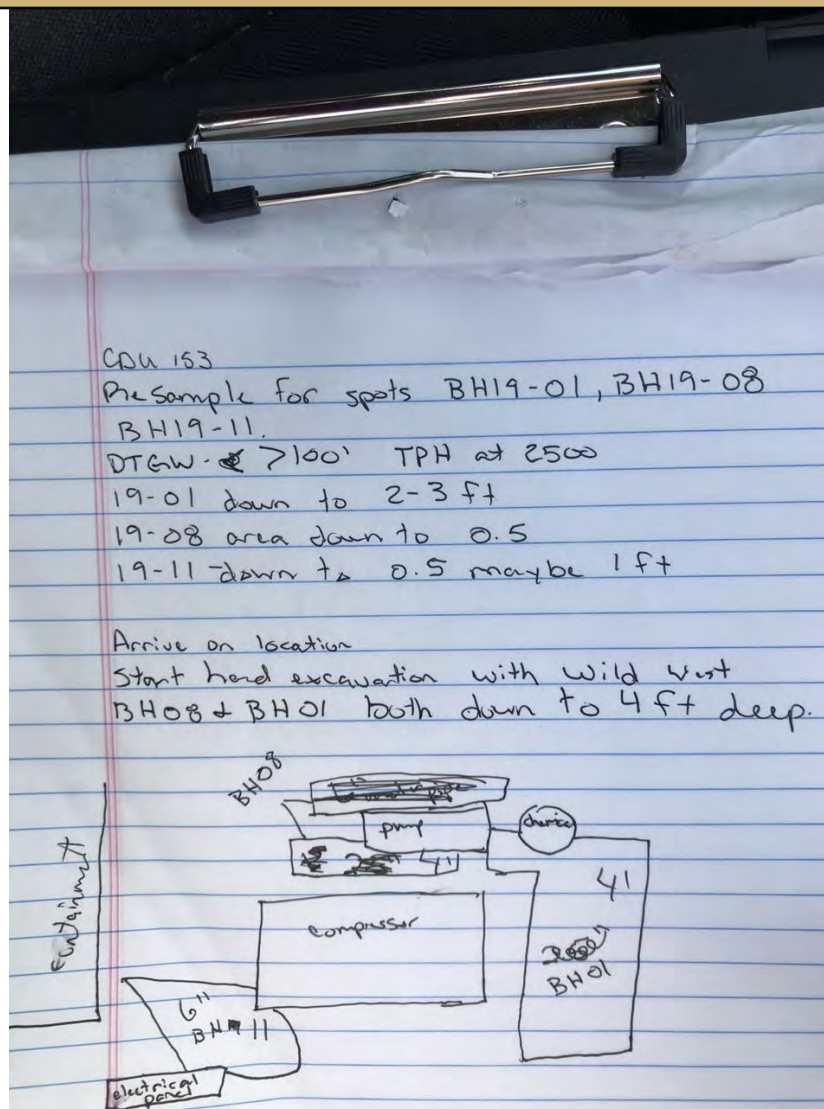 CDU 153
Presample for spots BH19-01, BH19-08
BH19-11.
DTGW- >100' TPH at 2500
19-01 down to 2-3 ft
19-08 area down to 0.5
19-11-down to 0.5 maybe 1 ft
Arrive on location
Start hand excavation with Wild West
BH08 & BH01 both down to 4 ft deep.
BH08
pump
4'
containment
compressor
4'
BH01
6"
BH 11
electrical
panel